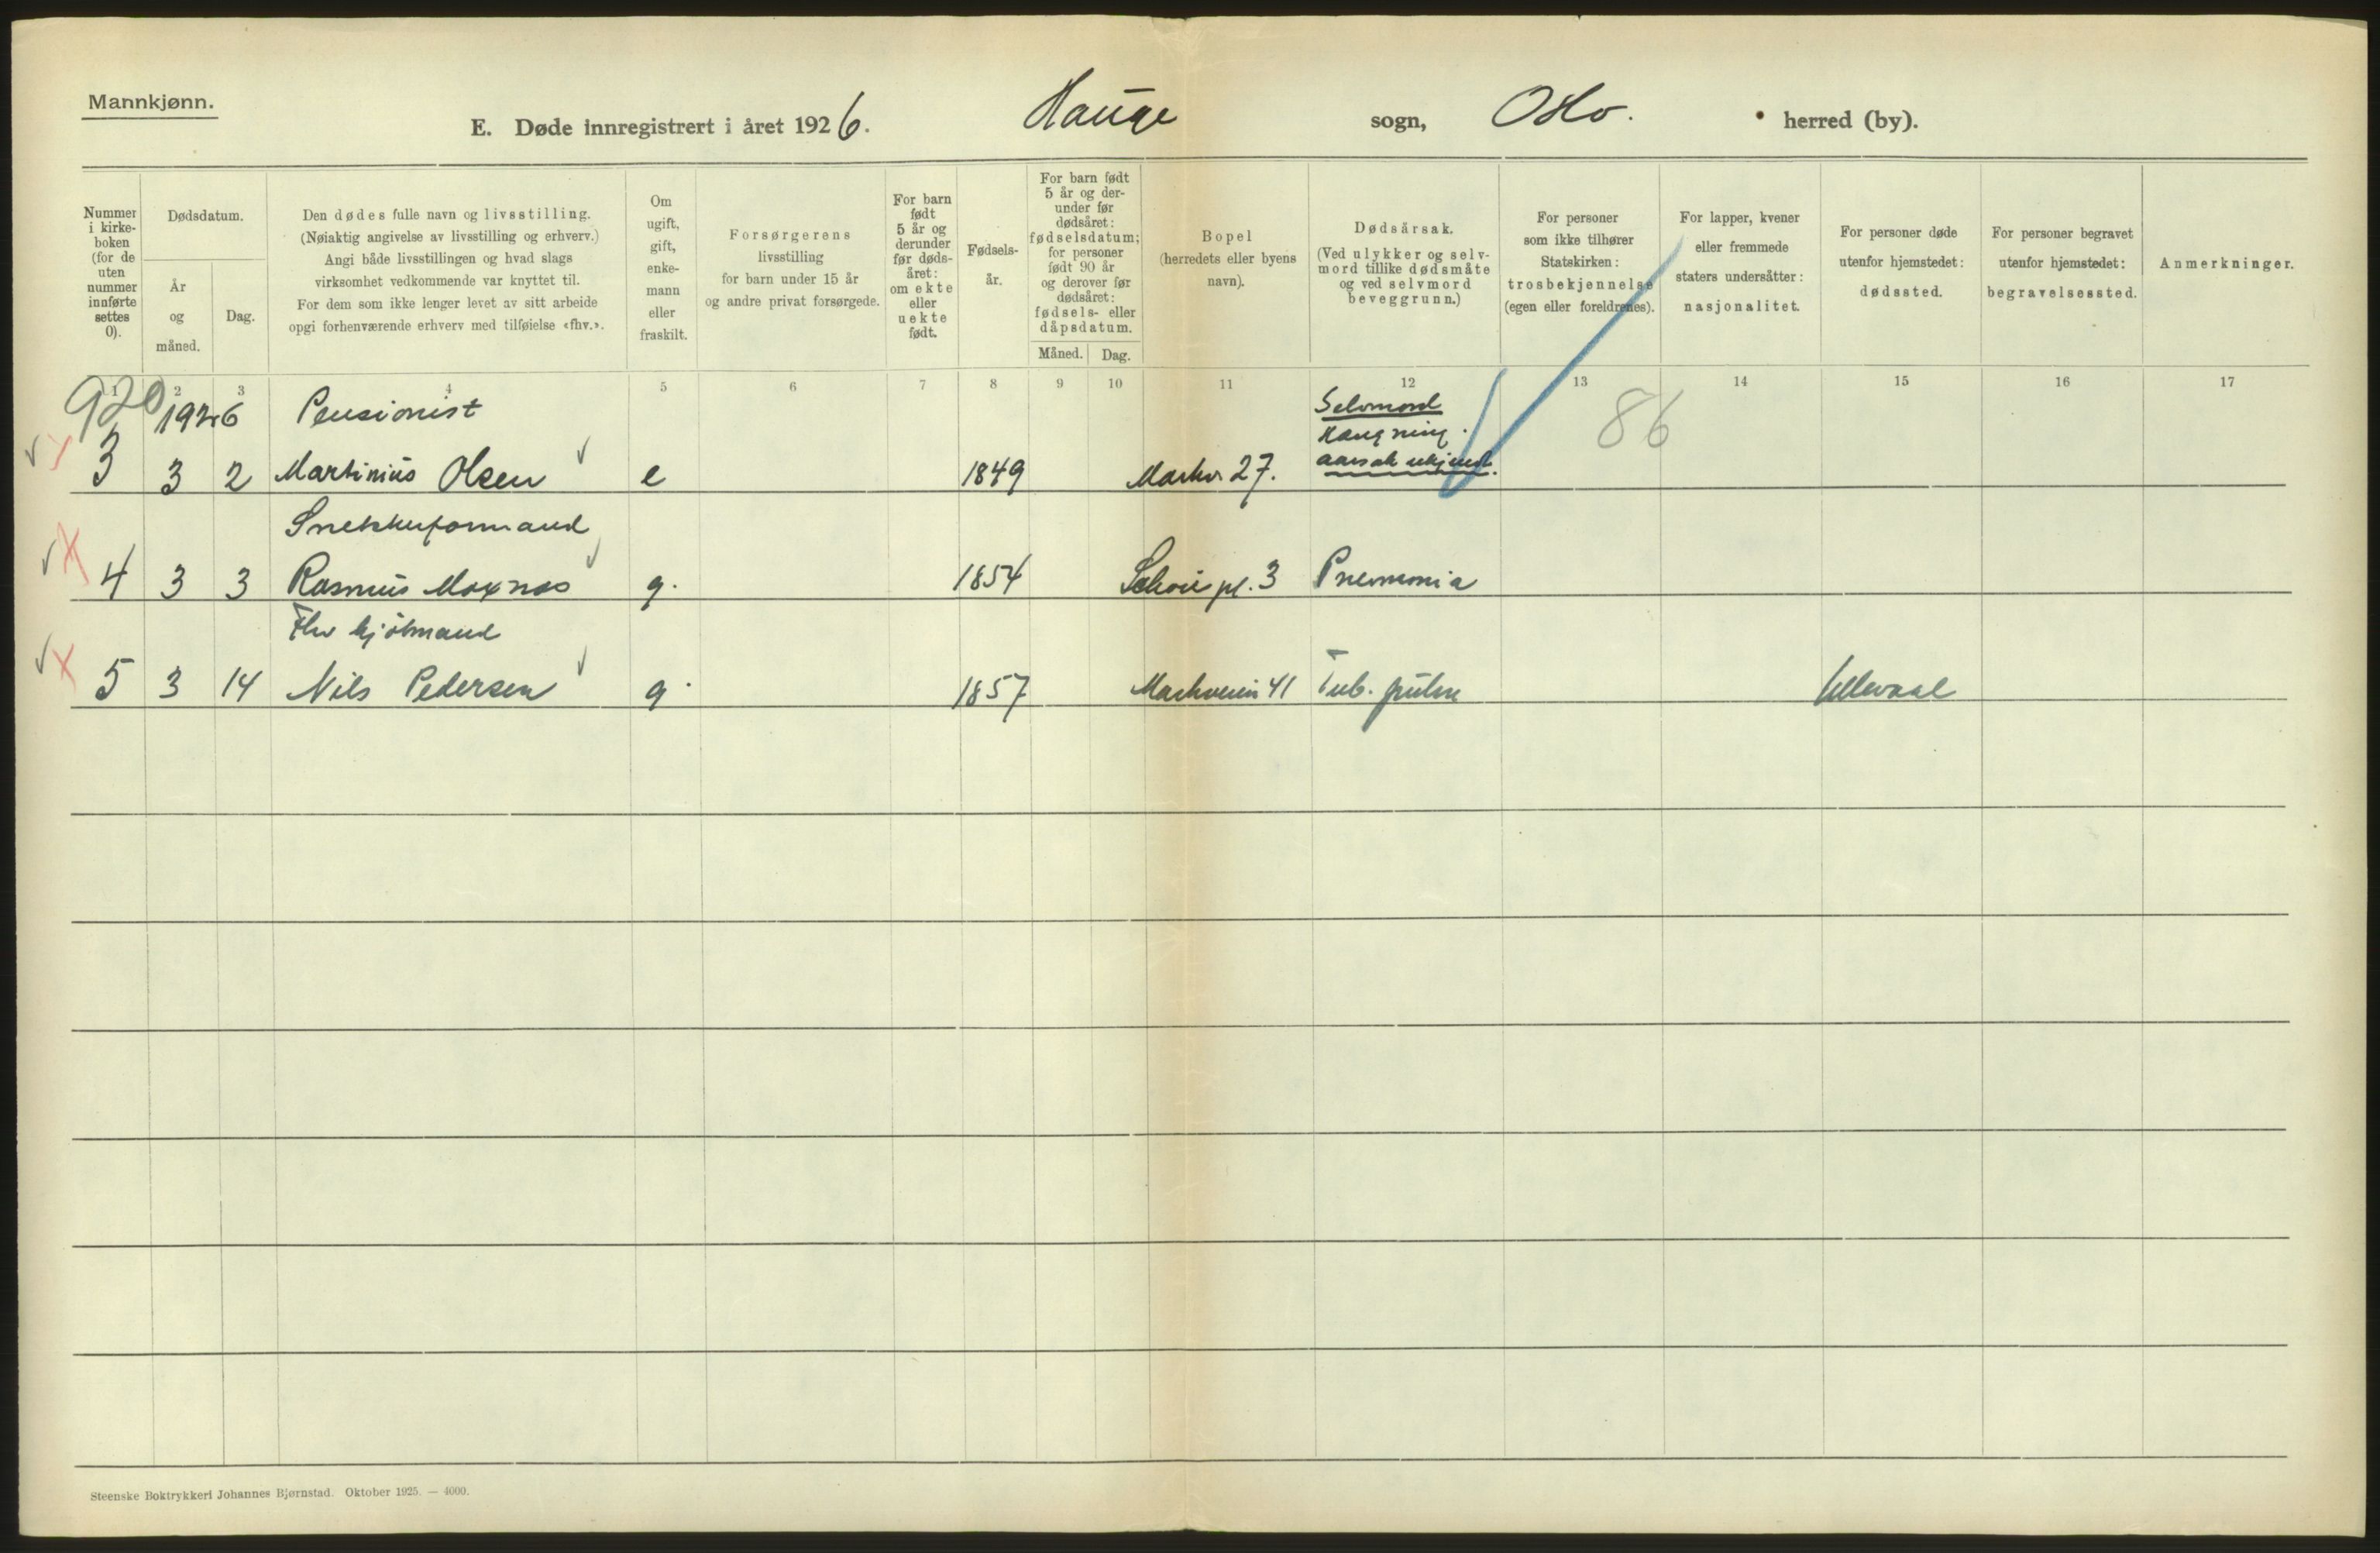 Mannkjønn.
E. Døde innregistrert i året 1926. Hauge sogn, Oslo. herred (by).
Nummer i kirke- boken (for de uten nummer innførte settes 0).
Dødsdatum.
År og måned.
Dag.
Den dødes fulle navn og livsstilling.
(Nøiaktig angivelse av livsstilling og erhverv.)
Angi både livsstillingen og hvad slags
virksomhet vedkommende var knyttet til.
For dem som ikke lenger levet av sitt arbeide
opgi forhenværende erhverv med tilføielse «fhv.».
Om ugift, gift, enke- mann eller fraskilt.
Forsørgerens
livsstilling
for barn under 15 år
og andre privat forsørgede.
For barn født 5 år og derunder før døds- året: om ekte eller uekte født.
Fødsels- år.
For barn født 5 år og der- under før dødsåret: fødselsdatum; for personer født 90 år og derover før dødsåret: fødsels- eller dåpsdatum.
Måned. Dag.
Bopel
(herredets eller byens
navn).
Dødsårsak.
(Ved ulykker og selv-
mord tillike dødsmåte
og ved selvmord
beveggrunn.)
For personer
som ikke tilhører
Statskirken:
trosbekjennelse
(egen eller foreldrenes).
For lapper, kvener
eller fremmede
staters undersåtter:
nasjonalitet.
For personer døde
utenfor hjemstedet:
dødssted.
For personer begravet
utenfor hjemstedet:
begravelsessted.
Anmerkninger.
1 2 3 4 5 6 7 8 9 10 11 12 13 14 15 16 17
920 1926 Pensionist Selvmord 86
Hængning.
3 3 2 Martinius Olsen e 1849 Markv 27. aarsak ukjendt.
Snekkerformand
4 3 3 Rasmus Moxnes g. 1854 Schous pl. 3 Pneumonia
Fhv kjøbmand
5 3 14 Nils Pedersen g. 1857 Markveien 41 Tub. pulm Ullevaal
Steenske Boktrykkeri Johannes Bjørnstad. Oktober 1925. — 4000.